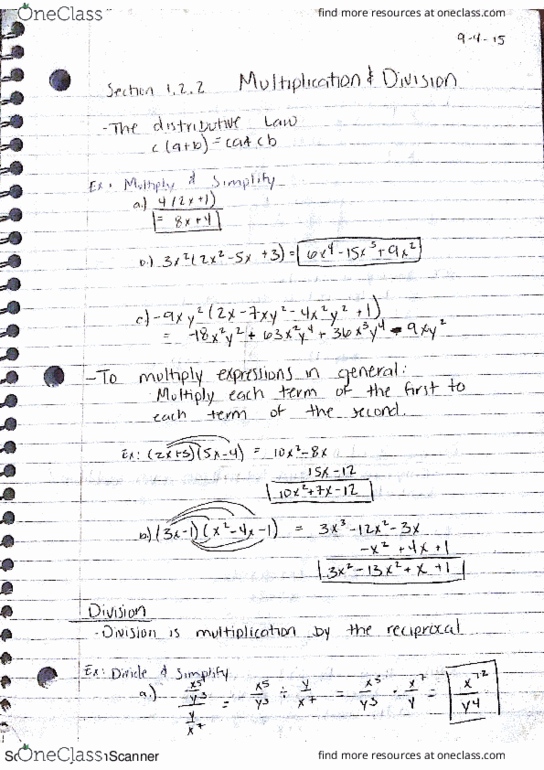 OneClass
find more resources at oneclass.com
9-4-15
Section 1.2.2 Multiplication & Division
-The distributive Law
c(a+b)=ca+cb
Ex: Multiply & Simplify
a.) 4(2x+1)
= 8x+4
b.) 3x²(2x²-5x+3)= 6x⁴-15x³+9x²
c) -9xy²(2x-7xy²-4x²y²+1)
= -18x²y²+63x²y⁴+36x³y⁴-9xy²
-To multiply expressions in general:
Multiply each term of the first to
each term of the second.
Ex: (2x+3)(5x-4) = 10x²-8x
15x-12
10x²+7x-12
b) (3x-1)(x²-4x-1) = 3x³-12x²-3x
-x²+4x+1
3x²-13x²+x+1
Division
-Division is multiplication by the reciprocal
Ex: Divide & Simplify
a.) x⁵/y³ / y/x⁷ = x⁵/y³ ÷ y/x⁷ = x⁵/y³ · x⁷/y = x¹²/y⁴
OneClass
Scanner
find more resources at oneclass.com